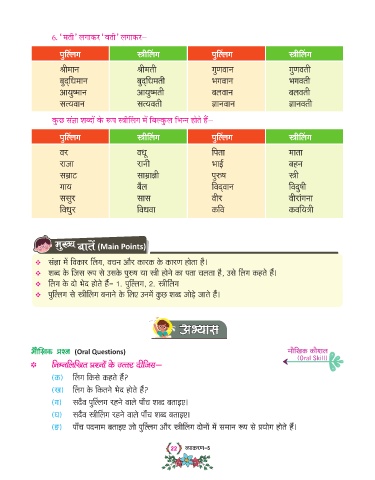 6. 'मती' लगाकर 'वती' लगाकर–
पुल्लिंग स्त्रीलिंग पुल्लिंग स्त्रीलिंग
श्रीमान श्रीमती गुणवान गुणवती
बुद्धिमान बुद्धिमती भगवान भगवती
आयुष्मान आयुष्मती बलवान बलवती
सत्यवान सत्यवती ज्ञानवान ज्ञानवती
कुछ संज्ञा शब्दों के रूप स्त्रीलिंग में बिल्कुल भिन्न होते हैं–
पुल्लिंग स्त्रीलिंग पुल्लिंग स्त्रीलिंग
वर वधू पिता माता
राजा रानी भाई बहन
सम्राट साम्राज्ञी पुरुष स्त्री
गाय बैल विद्वान विदुषी
ससुर सास वीर वीरांगना
विधुर विधवा कवि कवयित्री
मुख्य बातें (Main Points)
❖ संज्ञा में विकार लिंग, वचन और कारक के कारण होता है।
❖ शब्द के जिस रूप से उसके पुरुष या स्त्री होने का पता चलता है, उसे लिंग कहते हैं।
❖ लिंग के दो भेद होते हैं– 1. पुल्लिंग, 2. स्त्रीलिंग
❖ पुल्लिंग से स्त्रीलिंग बनाने के लिए उनमें कुछ शब्द जोड़े जाते हैं।
अभ्यास
मौखिक प्रश्न (Oral Questions)
मौखिक कौशल
(Oral Skill)
निम्नलिखित प्रश्नों के उत्तर दीजिए–
(क) लिंग किसे कहते हैं?
(ख) लिंग के कितने भेद होते हैं?
(ग) सदैव पुल्लिंग रहने वाले पाँच शब्द बताइए।
(घ) सदैव स्त्रीलिंग रहने वाले पाँच शब्द बताइए।
(ङ) पाँच पदनाम बताइए जो पुल्लिंग और स्त्रीलिंग दोनों में समान रूप से प्रयोग होते हैं।
22 व्याकरण-5